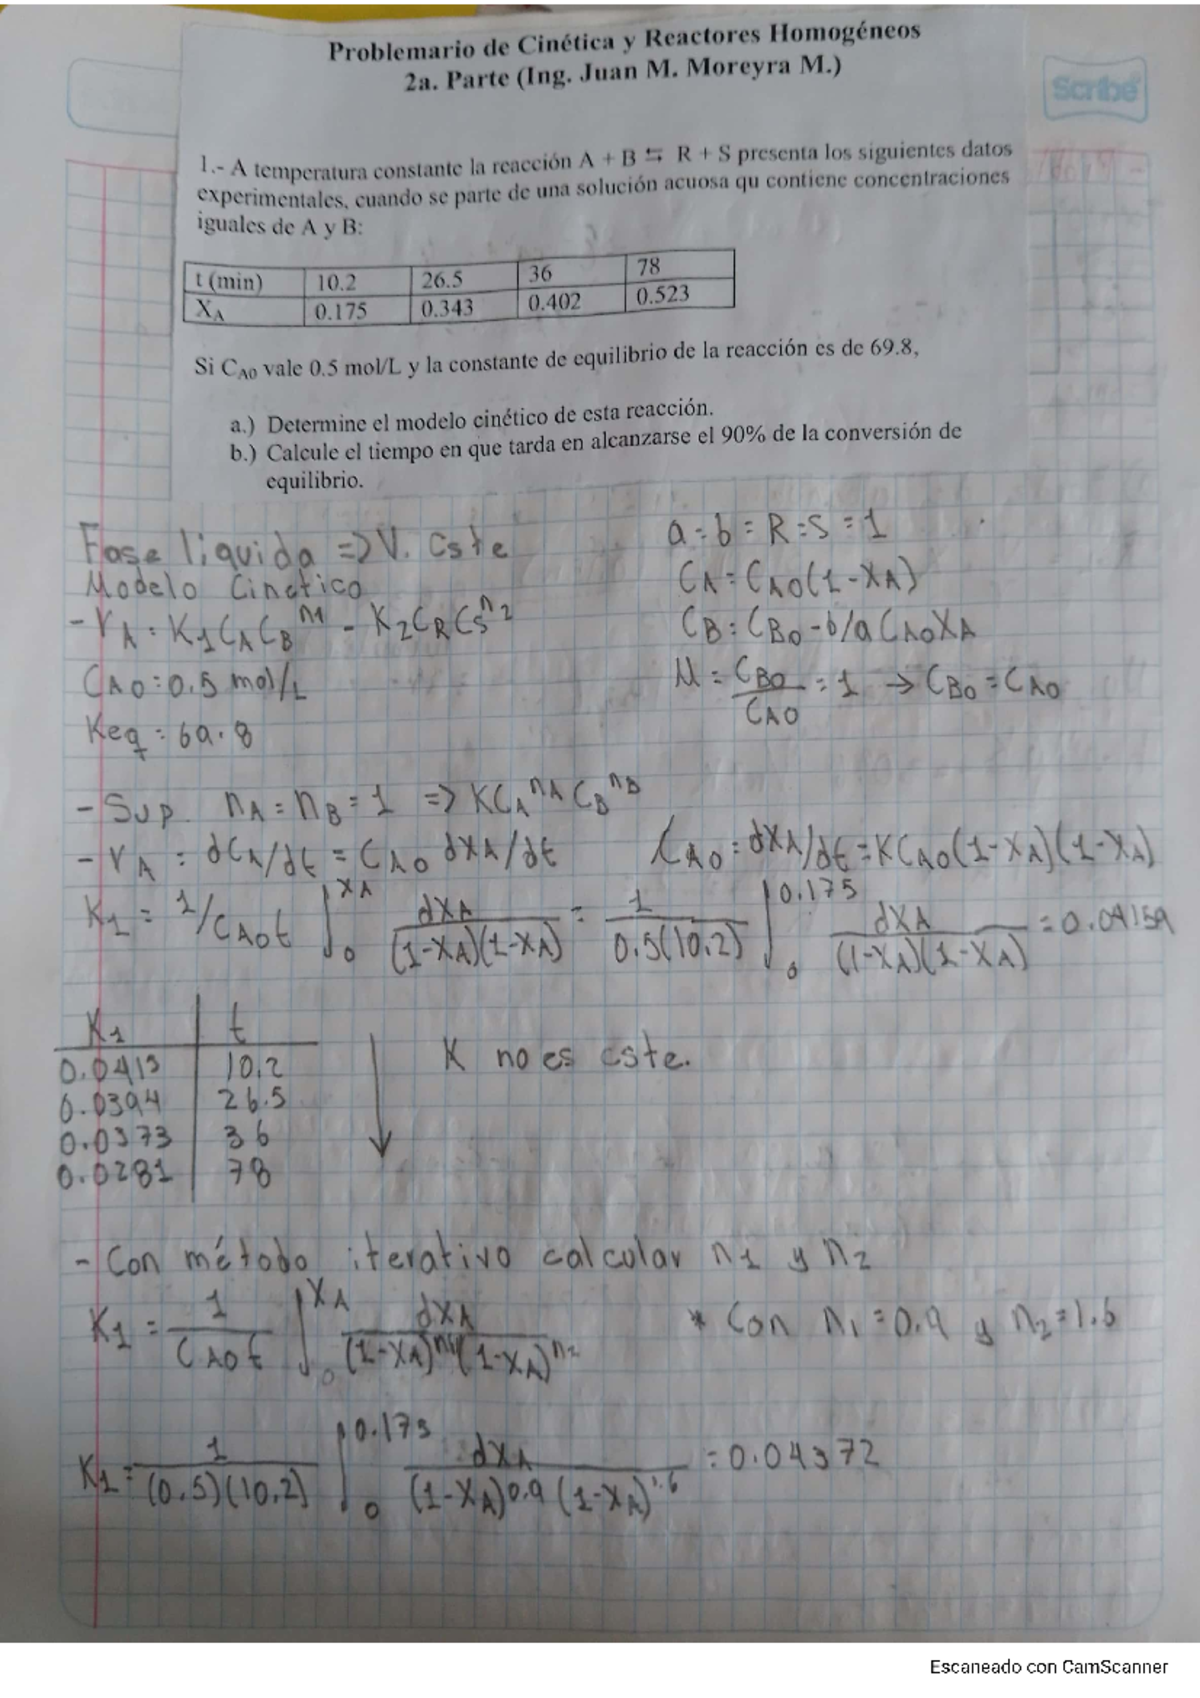 Problemario de Cinética y Reactores Homogéneos
2a. Parte (Ing. Juan M. Moreyra M.)
Scribe
1.- A temperatura constante la reacción A + B ⇆ R + S presenta los siguientes datos
experimentales, cuando se parte de una solución acuosa qu contiene concentraciones
iguales de A y B:
t (min) 10.2 26.5 36 78
XA 0.175 0.343 0.402 0.523
Si CA0 vale 0.5 mol/L y la constante de equilibrio de la reacción es de 69.8,
a.) Determine el modelo cinético de esta reacción.
b.) Calcule el tiempo en que tarda en alcanzarse el 90% de la conversión de
equilibrio.
Fase liquida => V. Cste
a = b = R = S = 1
Modelo Cinetico
CA = CA0(1-XA)
-rA = K1CACB^n1 - K2CRCS^n2
CB = CB0 - b/a CA0XA
CA0 = 0.5 mol/L
M = CB0/CA0 = 1 → CB0 = CA0
Keq = 69.8
- Sup. nA = nB = 1 => KCA^nA CB^nB
- rA = dCA/dt = CA0 dXA/dt CA0 = dXA/dt = KCA0(1-XA)(1-XA)
K1 = 1/CA0t ∫0^XA dXA/(1-XA)(1-XA) = 1/0.5(10.2) ∫0^0.175 dXA/(1-XA)(1-XA) = 0.04159
K1 t
0.0413 10.2
0.0394 26.5
0.0373 36
0.0281 78
K no es cste.
- Con método iterativo calcular n1 y n2
K1 = 1/CA0t ∫0^XA dXA/(1-XA)^n1(1-XA)^n2 * Con n1 = 0.9 y n2 = 1.6
K1 = 1/(0.5)(10.2) ∫0^0.175 dXA/(1-XA)^0.9(1-XA)^1.6 = 0.04372
Escaneado con CamScanner